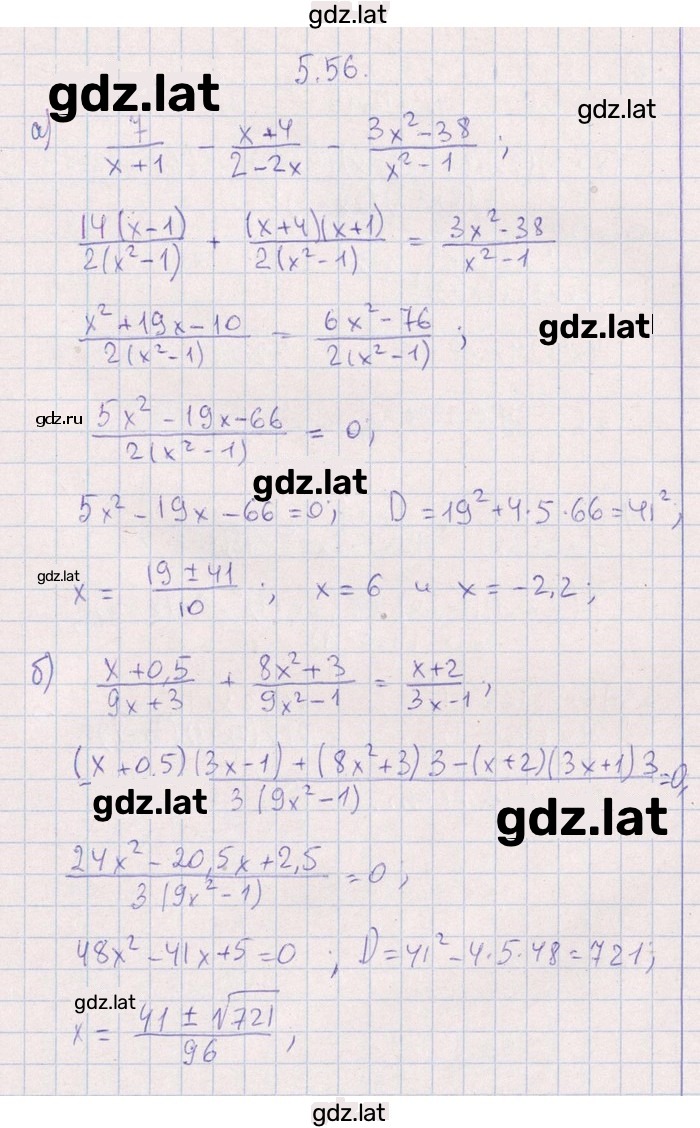 gdz.lat
5.56.
gdz.lat
gdz.lat
а) 7/(x+1) - (x+4)/(2-2x) - (3x²-38)/(x²-1) ;
14(x-1)/2(x²-1) + (x+4)(x+1)/2(x²-1) = (3x²-38)/(x²-1)
(x²+19x-10)/2(x²-1) = (6x²-76)/2(x²-1) ;
gdz.lat
gdz.ru
(5x²-19x-66)/2(x²-1) = 0;
gdz.lat
5x²-19x-66=0; D=19²+4·5·66=41²;
gdz.lat
x = (19±41)/10 ; x=6 и x=-2,2;
б) (x+0,5)/(9x+3) + (8x²+3)/(9x²-1) = (x+2)/(3x-1) ;
((x+0.5)(3x-1)+(8x²+3)3-(x+2)(3x+1)3)/3(9x²-1) =0,
gdz.lat
gdz.lat
(24x²-20,5x+2,5)/3(9x²-1) =0;
48x²-41x+5=0 ; D=41²-4·5·48=721;
gdz.lat
x = (41±√721)/96 ,
gdz.lat